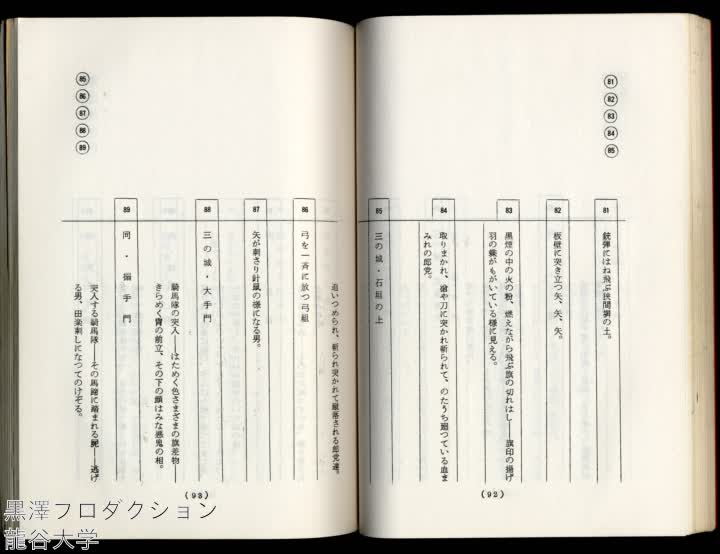 81
82
83
84
85
81
銃弾にはね飛ぶ狭間塀の土。
82
板壁に突き立つ矢、矢、矢。
83
黒煙の中の火の粉、燃えながら飛ぶ旗の切れはし——旗印の揚げ
羽の蝶がもがいている様に見える。
84
取りまかれ、槍や刀に突かれ斬られて、のたうち廻つている血ま
みれの郎党。
85
三の城・石垣の上
(92)
85
86
87
88
89
追いつめられ、斬られ突かれて蹴落される郎党達。
86
弓を一斉に放つ弓組
87
矢が刺さり針鼠の様になる男。
88
三の城・大手門
騎馬隊の突入——はためく色さまざまの旗差物
きらめく冑の前立、その下の顔はみな悪鬼の相。
89
同・搦手門
突入する騎馬隊——その馬蹄に踏まれる屍——逃げ
る男、田楽刺しになつてのけぞる。
(93)
黒澤プロダクション
龍谷大学